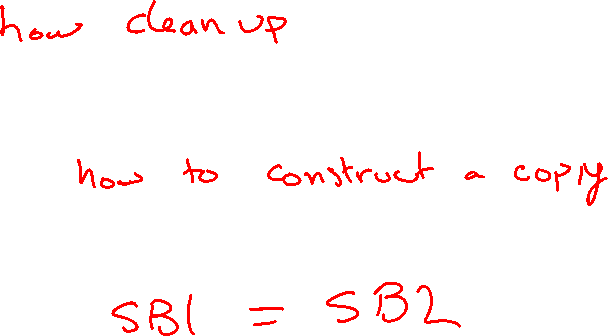 how clean up
how to construct a copy
SB1 = SB2